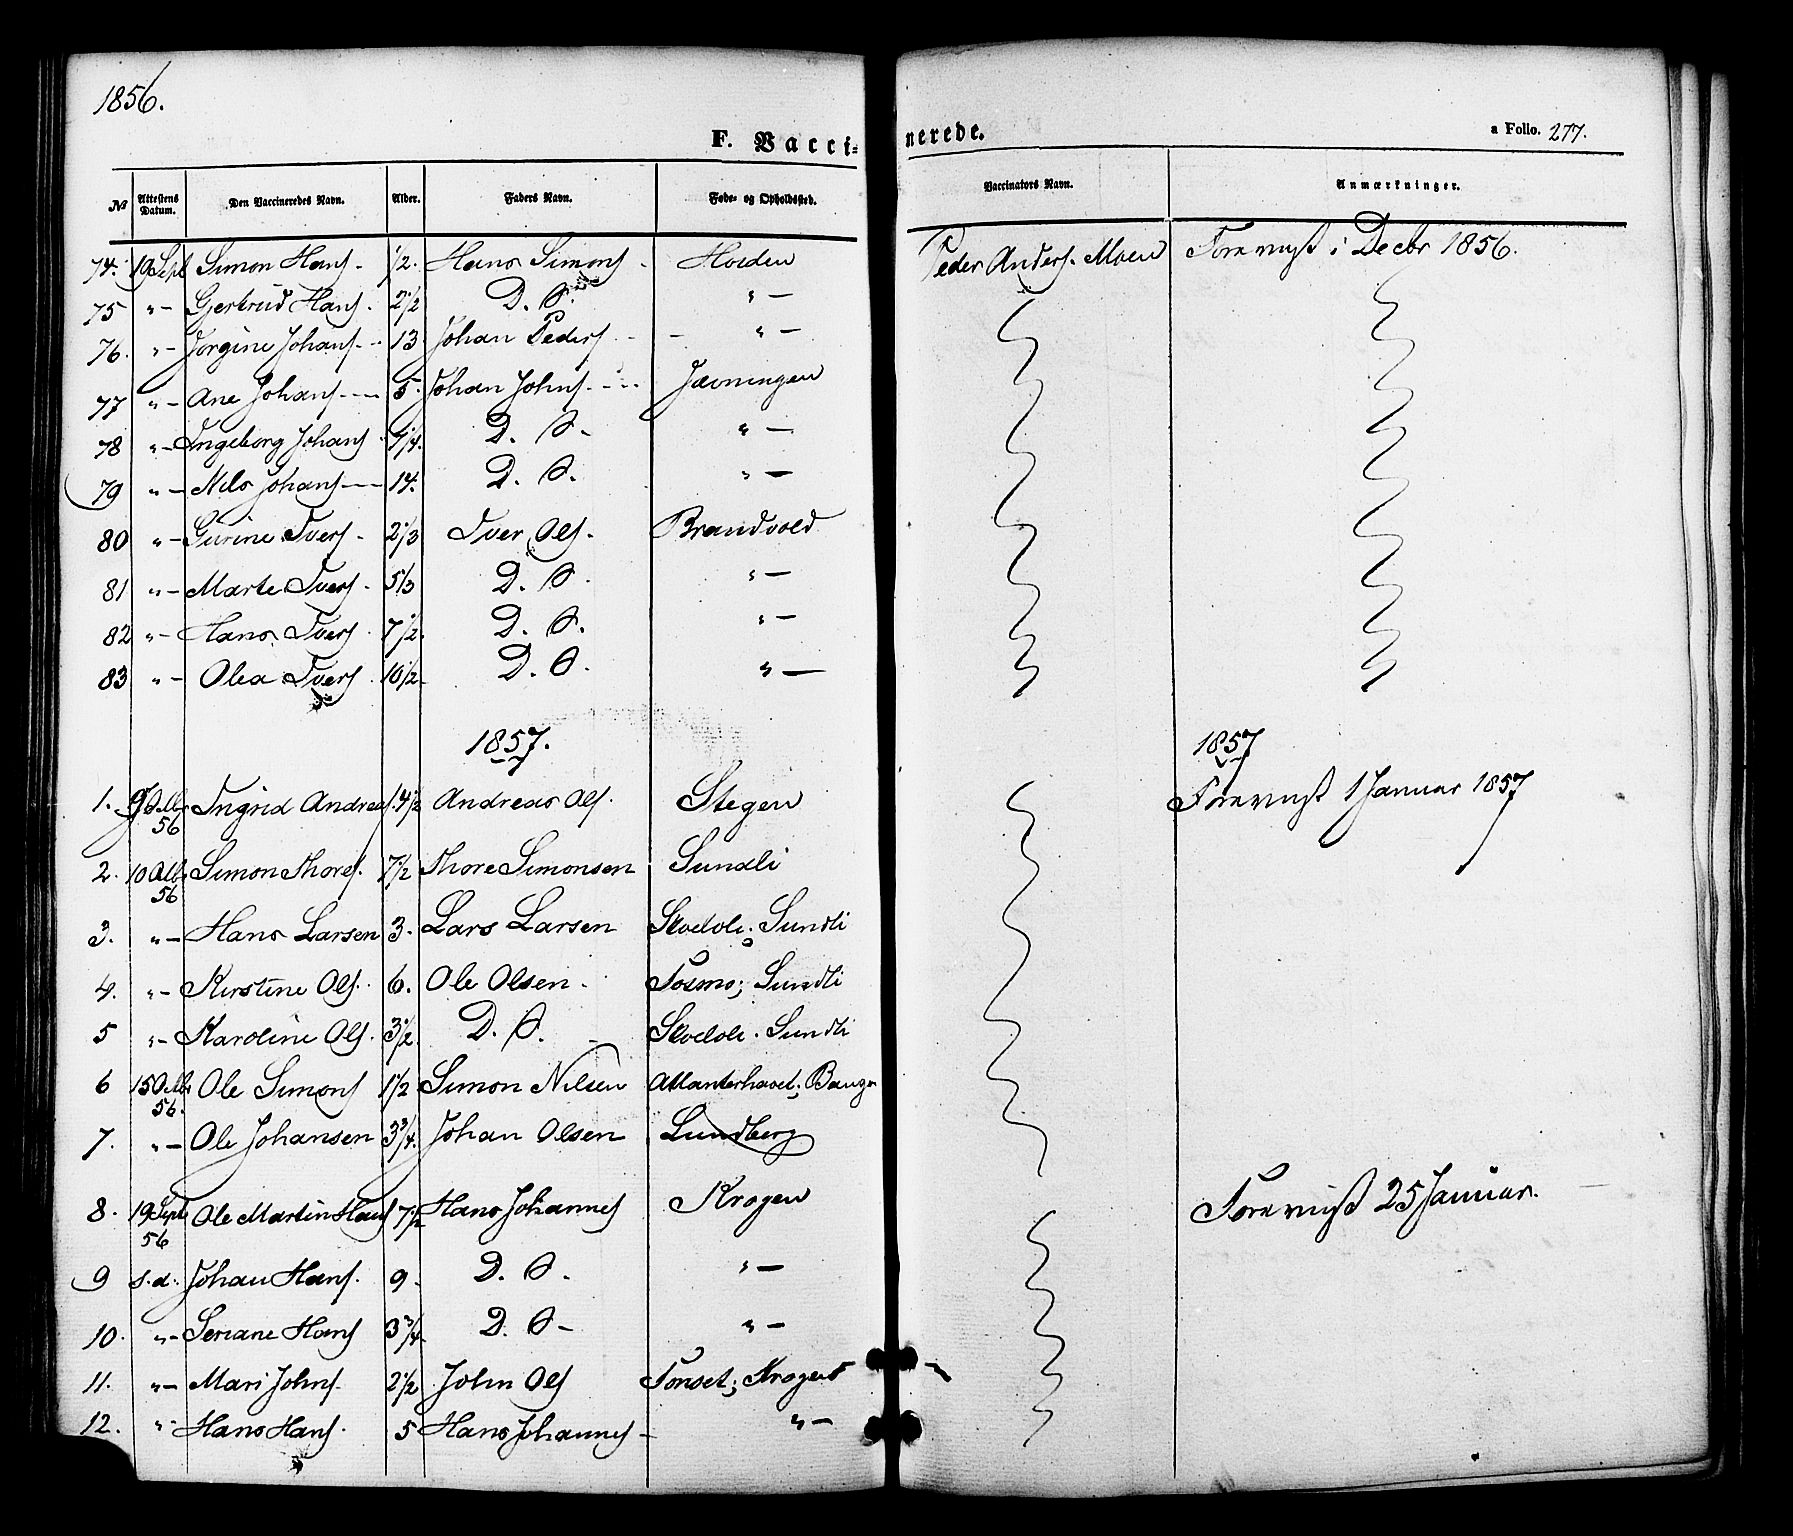 1856.
F. Vaccinerede.
a Folio. 277.
No Attestens Datum. Den Vaccineredes Navn. Alder. Faders Navn. Føde- og Opholdssted. Vaccinators Navn. Anmærkninger.
74. 19 Sept Simon Hans. 1/2. Hans Simons. Hoeden Peder Anders. Moen Foreviist i Decbr 1856.
75 "— Gjertrud Hans. 2 1/2 D. O. "—
76. "— Jørgine Johans. 13 Johan Peders. "—
77 "— Ane Johans. 5. Johan Johns. Jævningen
78 "— Ingeborg Johans D. O. "—
79 "— Nils Johans 14. D. O. "—
80 "— Gurine Ivers. 2 1/3 Iver Ols. Brandvold
81 "— Marte Ivers. 5 1/3 D. O. "—
82 "— Hans Ivers. 7 1/2. D. O. "—
83 "— Olea Ivers. 10 1/2. D. O. "—
1857. 1857
1. 9 Octbr 56 Ingrid Andreas. 4 1/2 Andreas Ols. Stegen Foreviist 1 Januar 1857
2. 10 Octbr 56 Simon Thores. 7 1/2 Thore Simonsen Sundli
3. "— Hans Larsen 3. Lars Larsen Skodole. Sundli
4. "— Kirstine Ols. 6. Ole Olsen. Tosmo; Sundli
5 "— Karoline Ols. 3 1/2. D. O. Skodole. Sundli
6 15 Octbr 56. Ole Simons 1 1/2 Simon Nilsen Atlanterhavet; Bangn
7. "— Ole Johansen 3 3/4. Johan Olsen Lundberg
8. 19 Sept 56 Ole Martin Hans 7 1/2 Hans Johannes Krogen Foreviist 25 Januar.
9 s. d. Johan Hans. 9. D. O. "—
10. "— Seriane Hans 3 3/4 D. O. "—
11. "— Mari Johns. 2 1/2 John Ols Tonset; Krogen
12. "— Hans Hans. 5 Hans Johannes "—